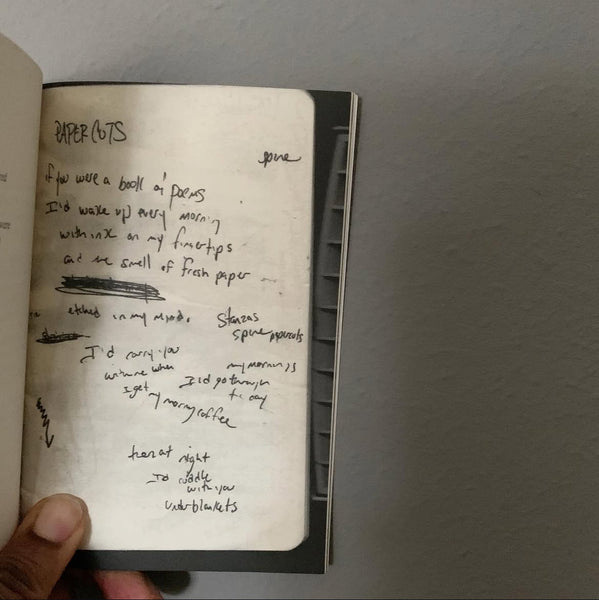 PAPER CUTS
spine
if you were a book of poems
I'd wake up every morning
with ink on my fingertips
and the smell of fresh paper
etched in my mind.
Stanzas
spine papercuts
I'd carry you
with me when
I get
my morning coffee
my mornings
I'd go through
the day
then at night
I'd cuddle
with you
under blankets